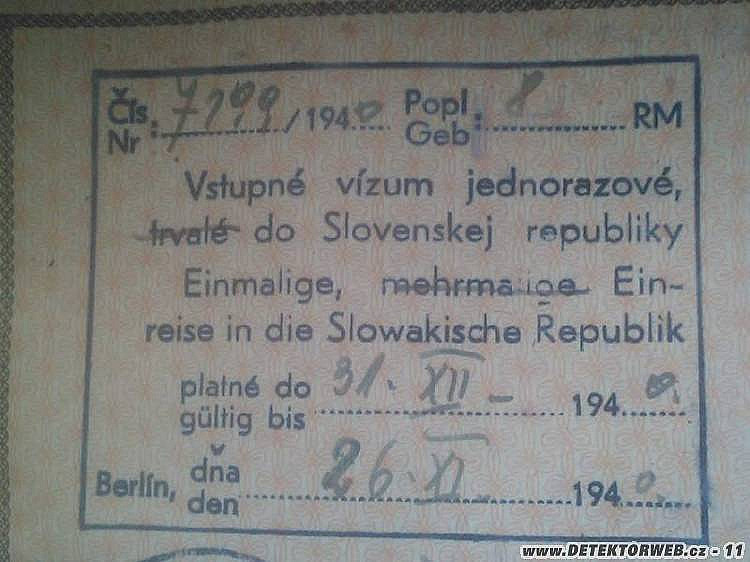 Čís. 7199/1940 Popl. 8 RM
Nr: Geb:
Vstupné vízum jednorazové,
trvalé do Slovenskej republiky
Einmalige, mehrmalige Ein-
reise in die Slowakische Republik
platné do 31. XII - 1940.
gültig bis
Berlín, dňa 26. XI 1940.
den
www.DETEKTORWEB.cz - 11